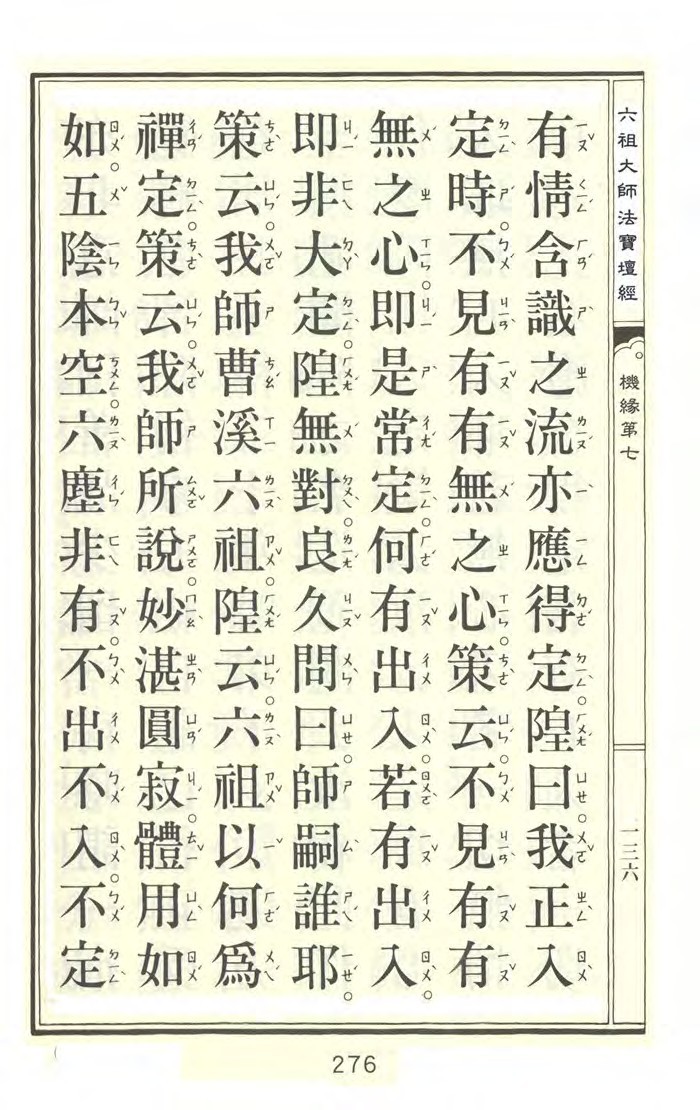 六祖大師法寶壇經
機緣第七
一三六
有情含識之流亦應得定。隍曰。我正入
定時。不見有有無之心。策云。不見有有
無之心。即是常定。何有出入。若有出入。
即非大定。隍無對。良久問曰。師嗣誰耶。
策云。我師曹溪六祖。隍云。六祖以何爲
禪定。策云。我師所說。妙湛圓寂。體用如
如。五陰本空。六塵非有。不出不入。不定
276